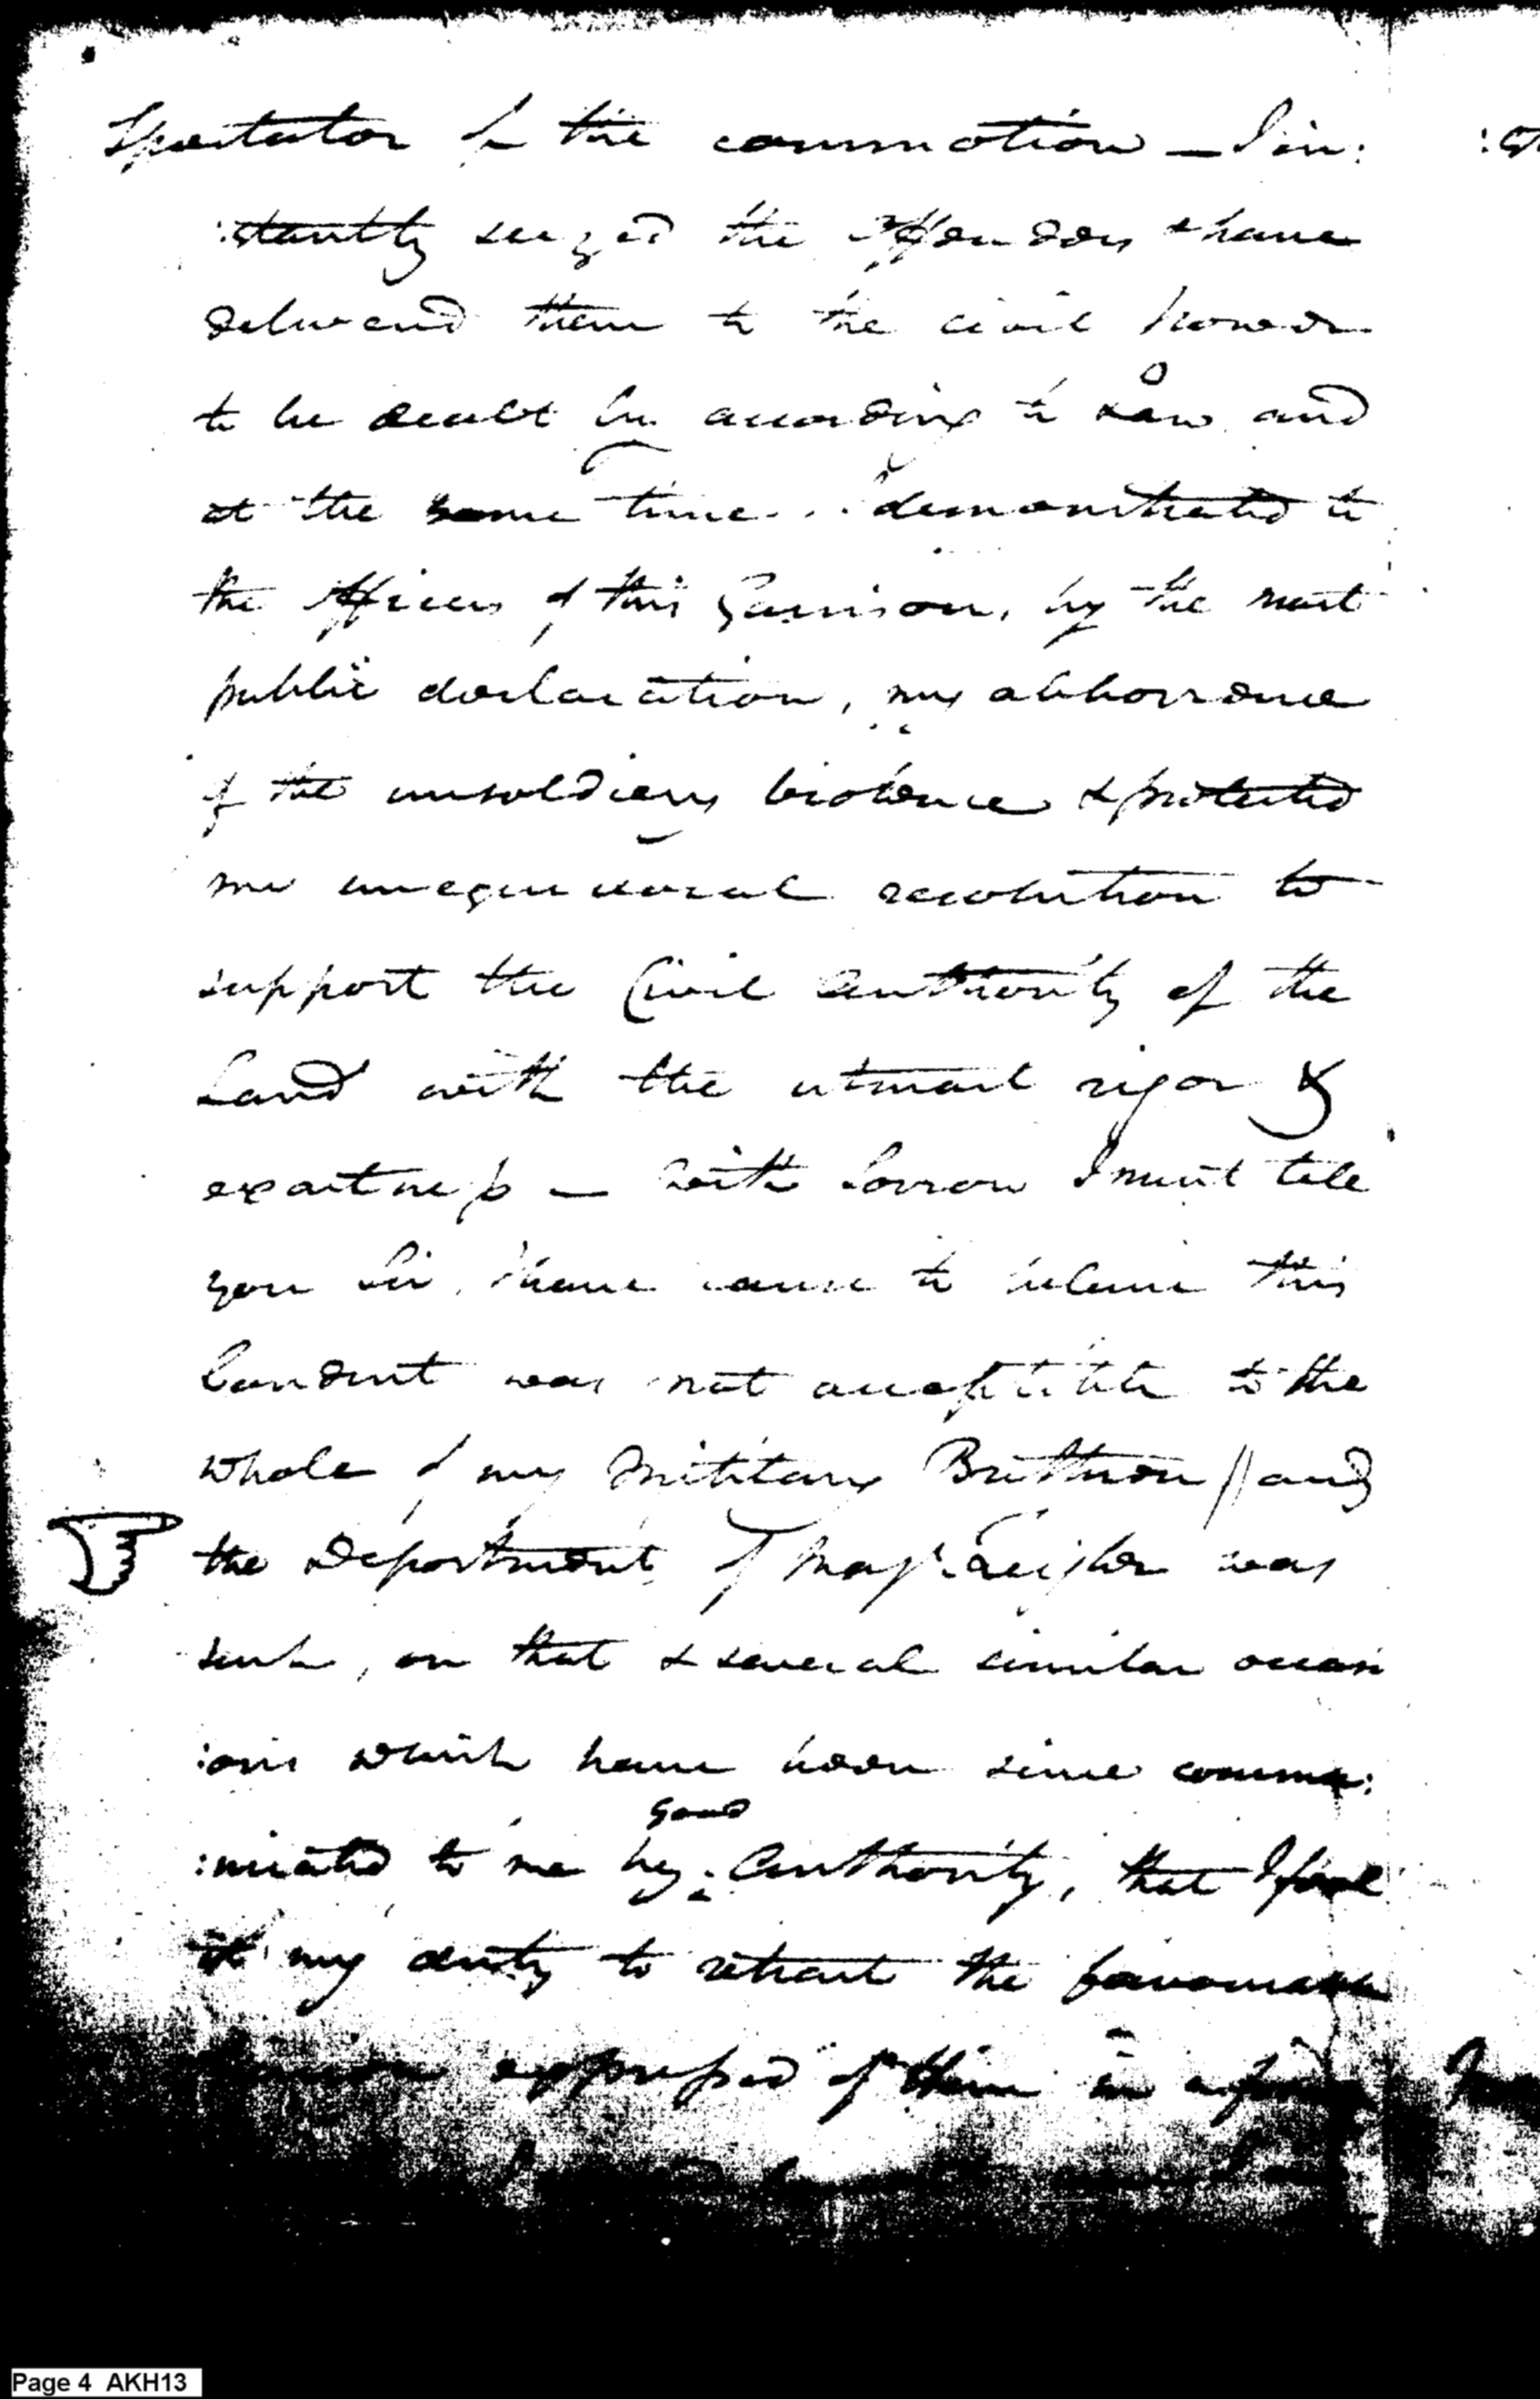 Spectator of the commotion — I in:
:stantly seized the offenders & have
delivered them to the civil power
to be dealt by according to Law and
at the same time demonstrated to
the officers of this Garrison, by the most
public declaration, my abhorrence
of the unsoldiery violence & protested
me unequivocal resolution to
support the Civil authority of the
Land with the utmost rigor &
exactness — with sorrow I must tell
you Sir, I have cause to believe this
Conduct was not acceptable to the
whole of my military Brethren // and
the Deportment of Majr. Zeigler was
such, on that & several similar occasi
:ons which have been since commu:
good
:nicated to me by Authority, that I feel
it my duty to retract the favourable
expressed of him in a
:
Page 4 AKH13